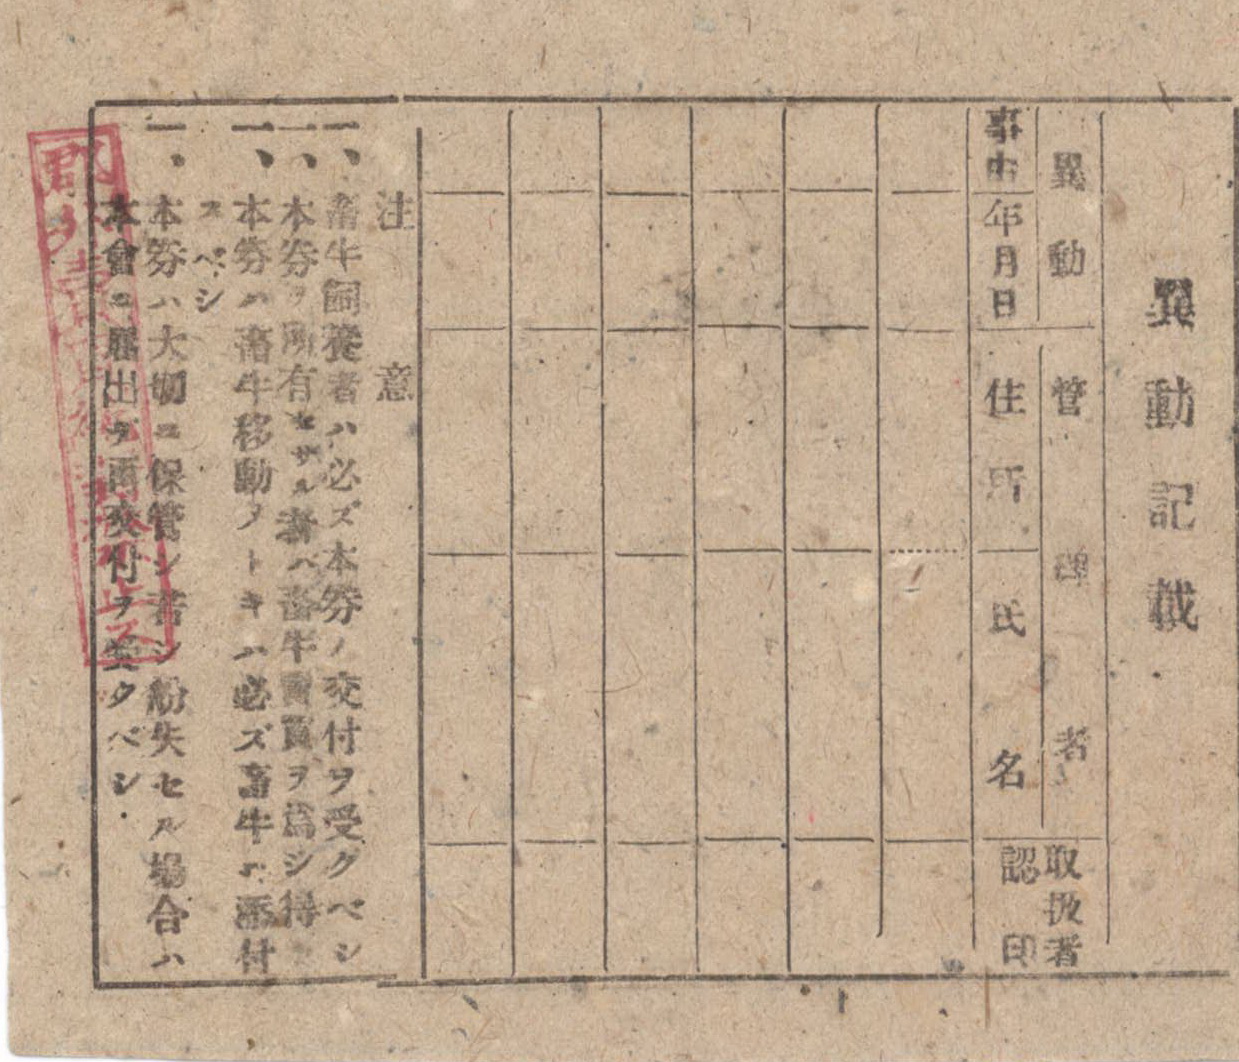 異動記載
異動
管理者
取扱者
認印
事由
年月日
住所
氏名
注意
一、畜牛飼養者ハ必ズ本券ノ交付ヲ受クベシ
一、本券ヲ所有セザル者ハ畜牛賣買ヲ爲シ得ズ
一、本券ハ畜牛移動ノトキハ必ズ畜牛ニ添付
スベシ
一、本券ハ大切ニ保管シ若シ紛失セル場合ハ
本會ニ届出デ再交付ヲ受クベシ
郡外